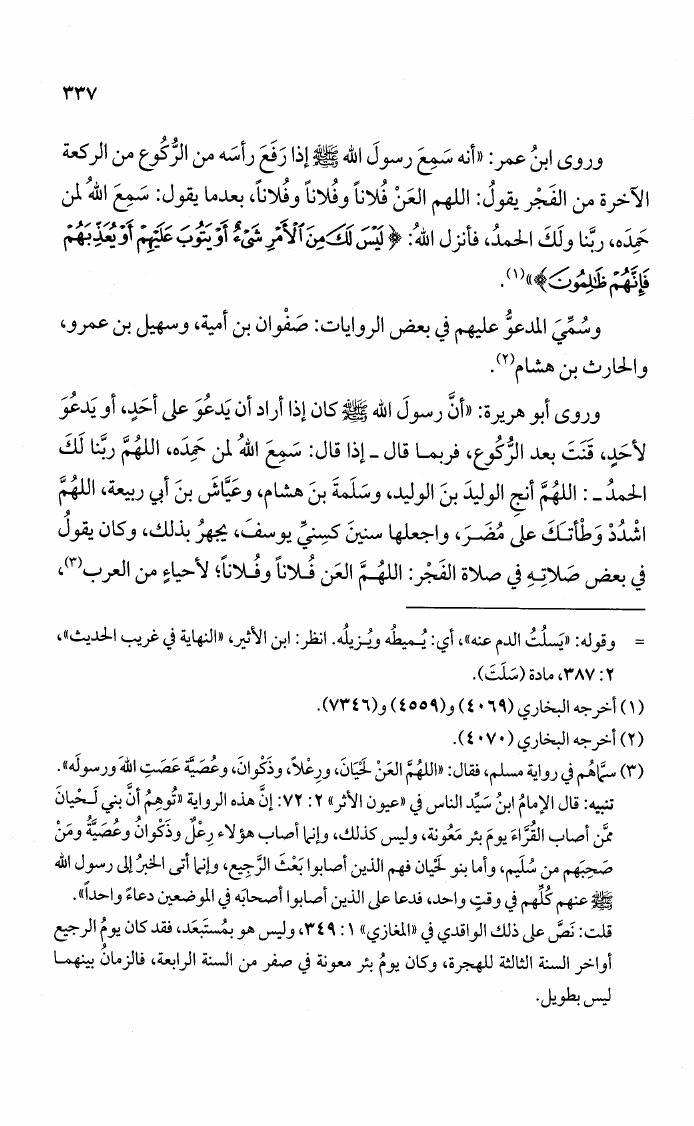 ٣٣٧
وروى ابنُ عمر: «أنه سَمِعَ رسولَ الله ﷺ إذا رَفَعَ رأسَه من الرُّكُوع من الركعة
الآخرة من الفَجْر يقولُ: اللهم العَنْ فُلاناً وفُلاناً وفُلاناً، بعدما يقول: سَمِعَ اللهُ لمن
حَمِدَه، ربَّنا ولَكَ الحمدُ، فأنزل اللهُ: ﴿لَيْسَ لَكَ مِنَ ٱلْأَمْرِ شَىْءٌ أَوْ يَتُوبَ عَلَيْهِمْ أَوْ يُعَذِّبَهُمْ
فَإِنَّهُمْ ظَٰلِمُونَ﴾»(١).
وسُمِّيَ المدعوُّ عليهم في بعض الروايات: صَفْوان بن أمية، وسهيل بن عمرو،
والحارث بن هشام(٢).
وروى أبو هريرة: «أنَّ رسولَ الله ﷺ كان إذا أراد أن يَدعُوَ على أحَدٍ، أو يَدعُوَ
لأحَدٍ، قَنَتَ بعد الرُّكُوع، فربمـا قال ـ إذا قال: سَمِعَ اللهُ لمن حَمِدَه، اللهُمَّ ربَّنا لَكَ
الحمدُ ـ: اللهُمَّ أنجِ الوليدَ بنَ الوليد، وسَلَمةَ بنَ هشام، وعَيَّاشَ بنَ أبي ربيعة، اللهُمَّ
اشْدُدْ وَطْأتـكَ على مُضَـرَ، واجعلها سنينَ كسِنيِّ يوسفَ، يجهرُ بذلك، وكان يقولُ
في بعض صَلاتِـهِ في صلاة الفَجْر: اللهُـمَّ العَن فُـلاناً وفُـلاناً؛ لأحياءٍ من العرب(٣)،
= وقوله: «يَسلُتُ الدم عنه»، أي: يُـميطُه ويُـزيلُه. انظر: ابن الأثير، «النهاية في غريب الحديث»،
٢: ٣٨٧، مادة (سَلَتَ).
(١) أخرجه البخاري (٤٠٦٩) و(٤٥٥٩) و(٧٣٤٦).
(٢) أخرجه البخاري (٤٠٧٠).
(٣) سمَّاهُم في رواية مسلم، فقال: «اللهُمَّ العَنْ لَحْيَانَ، ورِعْلاً، وذَكْوانَ، وعُصَيَّة عَصَتِ اللهَ ورسولَه».
تنبيه: قال الإمامُ ابنُ سَيِّد الناس في «عيون الأثر» ٢: ٧٢: إنَّ هذه الرواية «تُوهِمُ أنَّ بني لَـحْيانَ
ممَّن أصاب القُرَّاءَ يومَ بئر مَعُونة، وليس كذلك، وإنما أصاب هؤلاء رِعْلٌ وذَكْوانُ وعُصَيَّةُ ومَنْ
صَحِبَهم من سُلَيم، وأما بنو لَحْيان فهم الذين أصابوا بَعْثَ الرَّجِيع، وإنما أتى الخبرُ إلى رسول الله
ﷺ عنهم كُلِّهم في وقتٍ واحد، فدعا على الذين أصابوا أصحابَه في الموضعين دعاءً واحداً».
قلت: نَصَّ على ذلك الواقدي في «المغازي» ١: ٣٤٩، وليس هو بمُستَبعَد، فقد كان يومُ الرجيع
أواخر السنة الثالثة للهجرة، وكان يومُ بئر معونة في صفر من السنة الرابعة، فالزمانُ بينهمـا
ليس بطويل.